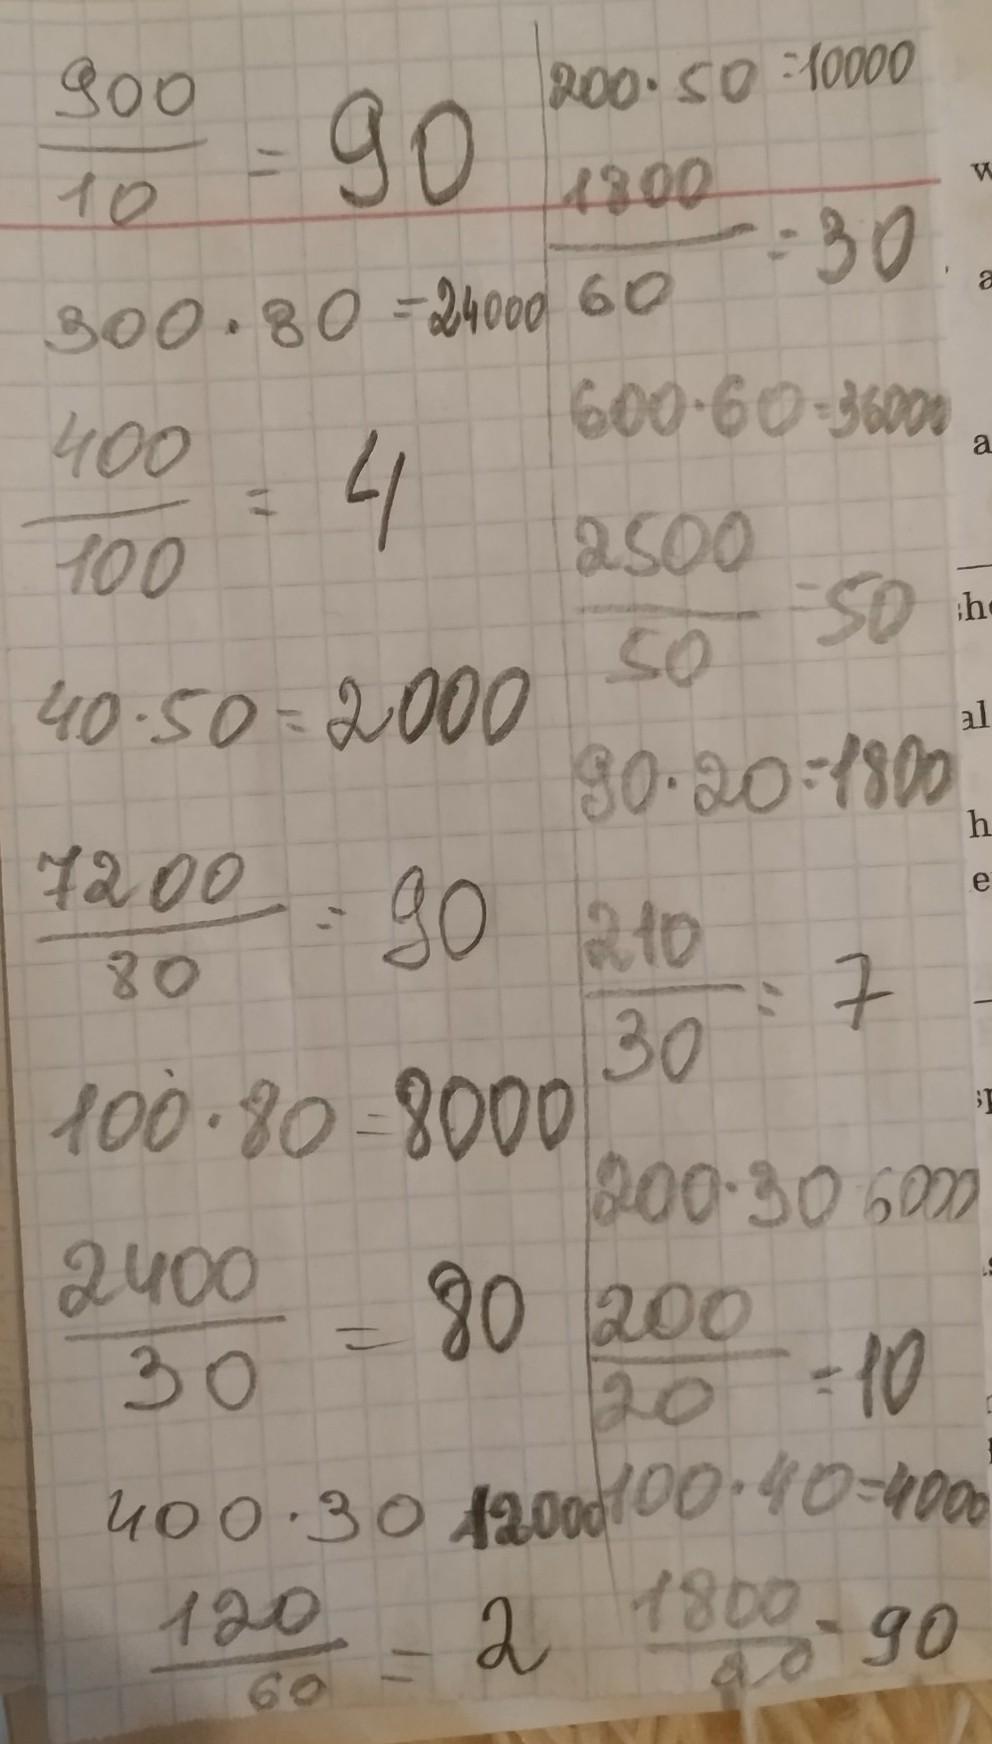 900
10
= 90
300 · 80 = 24000
400
100
= 4
40 · 50 = 2000
7200
80
= 90
100 · 80 = 8000
2400
30
= 80
400 · 30 12000
120
60
= 2
200 · 50 = 10000
1800
60
= 30
600 · 60 = 36000
2500
50
= 50
90 · 20 = 1800
210
30
= 7
200 · 30 6000
200
20
= 10
100 · 40 = 4000
1800
20
- 90